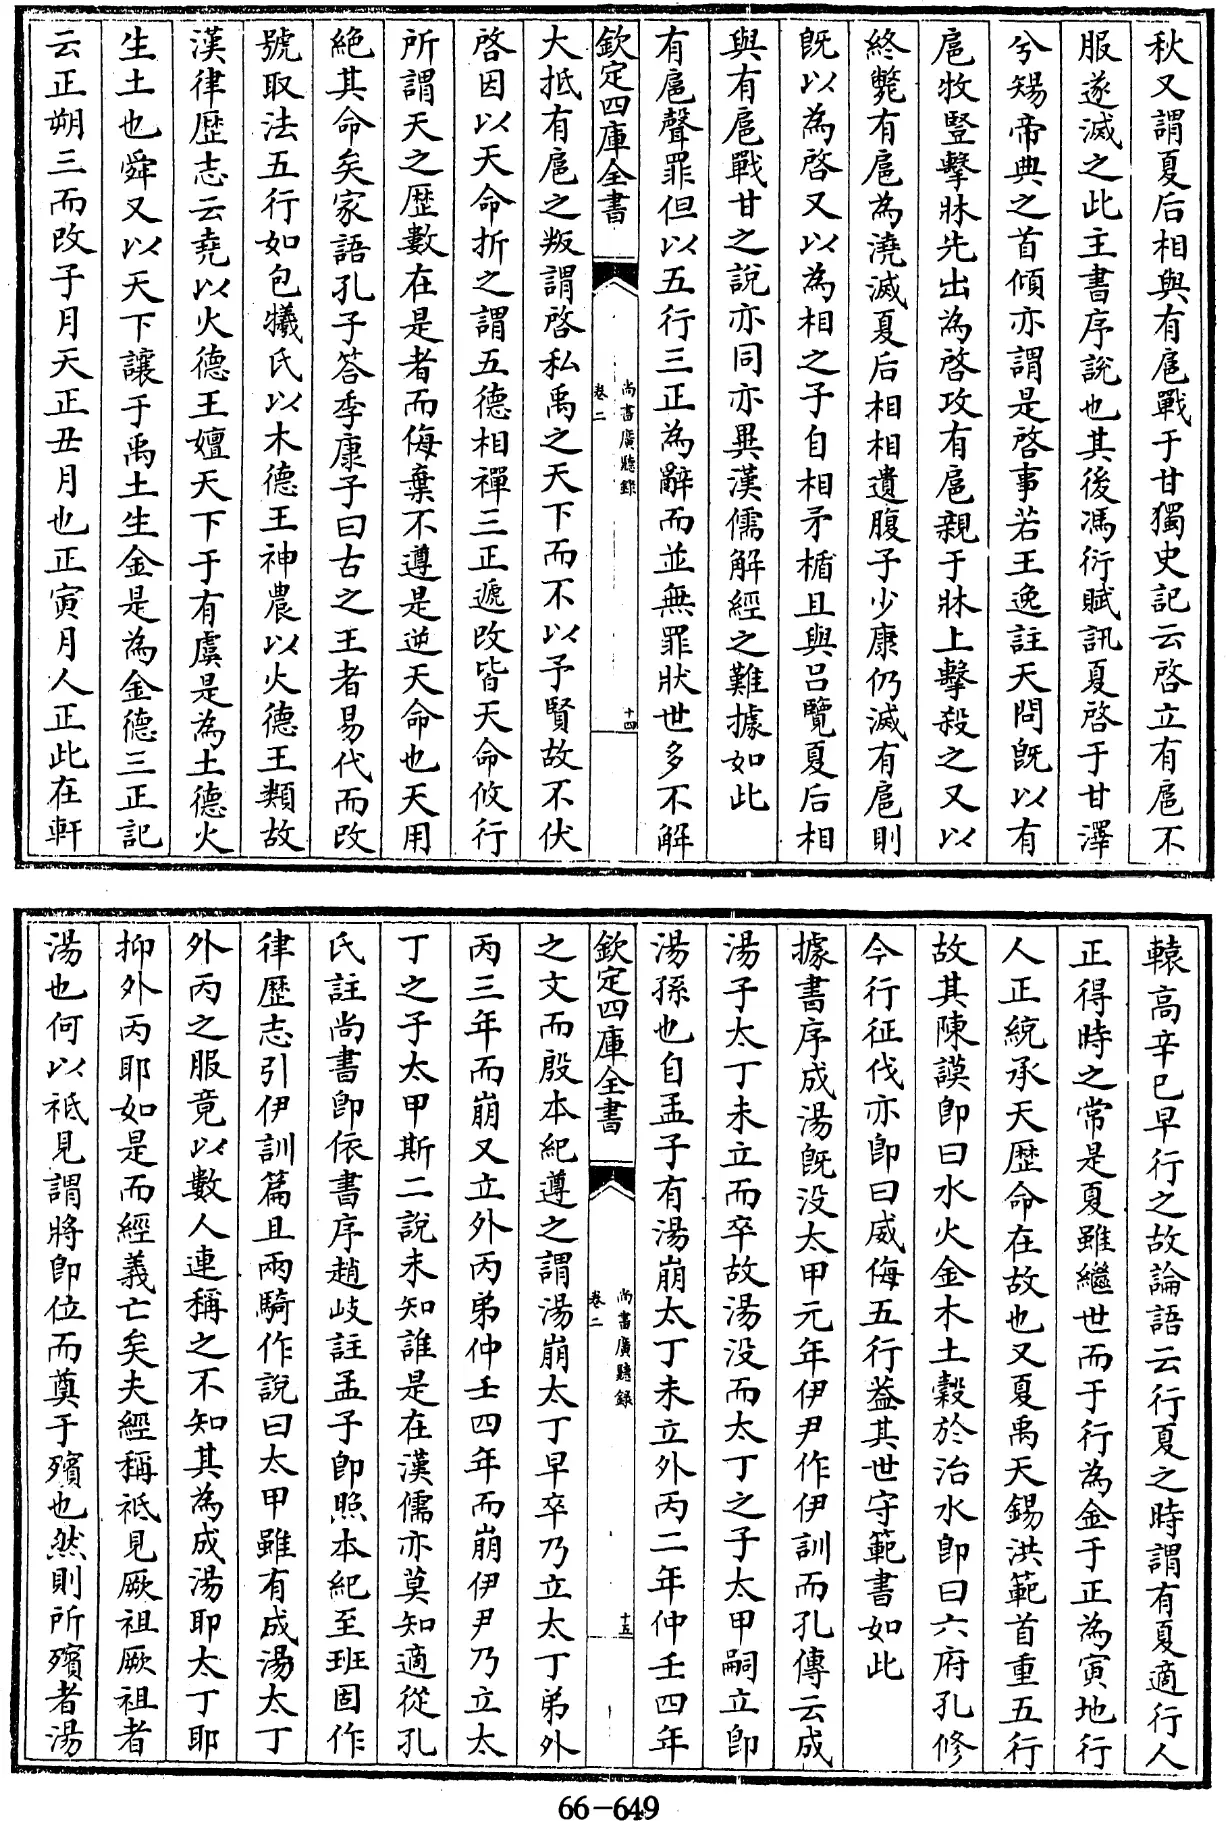 秋又謂夏后相與有扈戰于甘獨史記云啓立有扈不
服遂滅之此主書序說也其後馮衍賦訊夏啓于甘澤
兮傷帝典之首傾亦謂是啓事若王逸註天問旣以有
扈牧豎擊牀先出為啓攻有扈親于牀上擊殺之又以
終斃有扈為澆滅夏后相相遺腹子少康仍滅有扈則
旣以為啓又以為相之子自相矛楯且與呂覽夏后相
與有扈戰甘之說亦同亦異漢儒解經之難據如此
有扈聲罪但以五行三正為辭而並無罪狀世多不解
欽定四庫全書
尚書廣聽錄
卷二
十四
大抵有扈之叛謂啓私禹之天下而不以予賢故不伏
啓因以天命折之謂五德相禪三正遞改皆天命攸行
所謂天之歷數在是者而侮棄不遵是逆天命也天用
絕其命矣家語孔子答季康子曰古之王者易代而改
號取法五行如包犧氏以木德王神農以火德王類故
漢律歷志云堯以火德王嬗天下于有虞是為土德火
生土也舜又以天下讓于禹土生金是為金德三正記
云正朔三而改子月天正丑月也正寅月人正此在軒
轅高辛已早行之故論語云行夏之時謂有夏適行人
正得時之常是夏雖繼世而于行為金于正為寅地行
人正統承天歷命在故也又夏禹天錫洪範首重五行
故其陳謨即曰水火金木土穀於治水即曰六府孔修
今行征伐亦即曰威侮五行葢其世守範書如此
據書序成湯旣没太甲元年伊尹作伊訓而孔傳云成
湯子太丁未立而卒故湯没而太丁之子太甲嗣立即
湯孫也自孟子有湯崩太丁未立外丙二年仲壬四年
欽定四庫全書
尚書廣聽錄
卷二
十五
之文而殷本紀遵之謂湯崩太丁早卒乃立太丁弟外
丙三年而崩又立外丙弟仲壬四年而崩伊尹乃立太
丁之子太甲斯二說未知誰是在漢儒亦莫知適從孔
氏註尚書即依書序趙岐註孟子即照本紀至班固作
律歷志引伊訓篇且兩騎作說曰太甲雖有成湯太丁
外丙之服竟以數人連稱之不知其為成湯耶太丁耶
抑外丙耶如是而經義亡矣夫經稱祗見厥祖厥祖者
湯也何以祗見謂將即位而奠于殯也然則所殯者湯
66-649